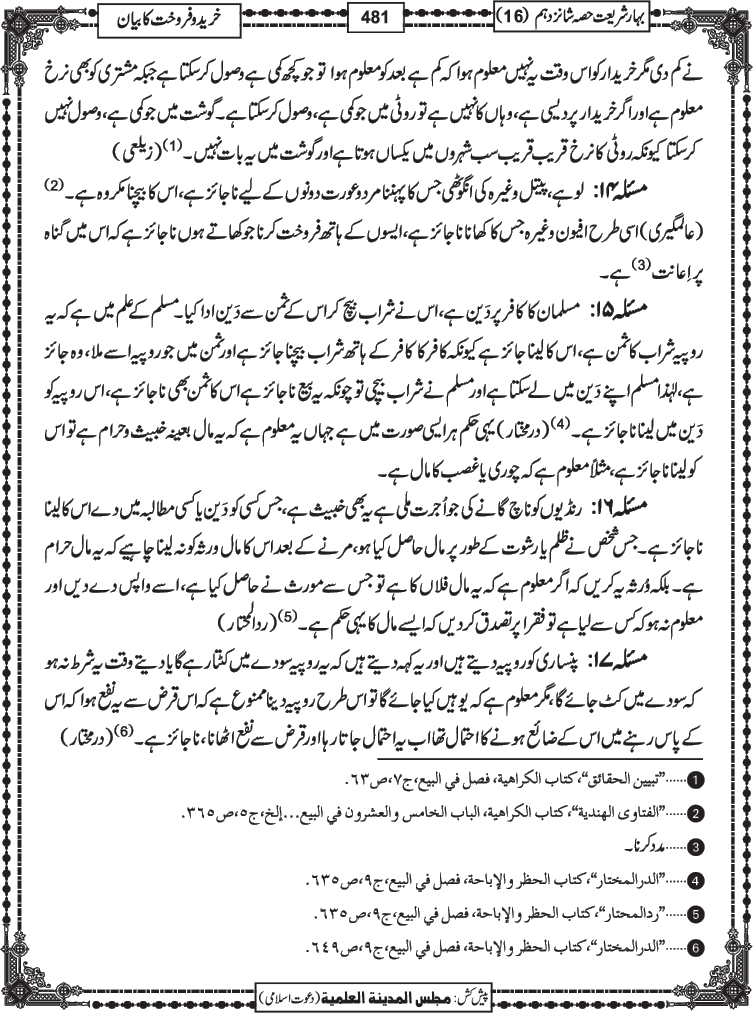 بہار شریعت حصہ شانزدہم (16)
481
خرید و فروخت کا بیان
نے کم دی مگر خریدار کو اس وقت یہ نہیں معلوم ہوا کہ کم ہے بعد کو معلوم ہوا تو جو کچھ کمی ہے وصول کر سکتا ہے جبکہ مشتری کو بھی نرخ
معلوم ہے اور اگر خریدار پردیسی ہے، وہاں کا نہیں ہے تو روٹی میں جو کمی ہے، وصول کر سکتا ہے۔ گوشت میں جو کمی ہے، وصول نہیں
کر سکتا کیونکہ روٹی کا نرخ قریب قریب سب شہروں میں یکساں ہوتا ہے اور گوشت میں یہ بات نہیں۔(1) (زیلعی)
مسئلہ ۱۴: لوہے، پیتل وغیرہ کی انگوٹھی جس کا پہننا مرد و عورت دونوں کے لیے ناجائز ہے، اس کا بیچنا مکروہ ہے۔(2)
(عالمگیری) اسی طرح افیون وغیرہ جس کا کھانا ناجائز ہے، ایسوں کے ہاتھ فروخت کرنا جو کھاتے ہوں ناجائز ہے کہ اس میں گناہ
پر اِعانت(3) ہے۔
مسئلہ ۱۵: مسلمان کا کافر پر دَین ہے، اس نے شراب بیچ کر اس کے ثمن سے دَین ادا کیا۔ مسلم کے علم میں ہے کہ یہ
روپیہ شراب کا ثمن ہے، اس کا لینا جائز ہے کیونکہ کافر کا کافر کے ہاتھ شراب بیچنا جائز ہے اور ثمن میں جو روپیہ اسے ملا، وہ جائز
ہے، لہٰذا مسلم اپنے دَین میں لے سکتا ہے اور مسلم نے شراب بیچی تو چونکہ یہ بیع ناجائز ہے اس کا ثمن بھی ناجائز ہے، اس روپیہ کو
دَین میں لینا ناجائز ہے۔(4) (درمختار) یہی حکم ہر ایسی صورت میں ہے جہاں یہ معلوم ہے کہ یہ مال بعینہ خبیث و حرام ہے تو اس
کو لینا ناجائز ہے، مثلاً معلوم ہے کہ چوری یا غصب کا مال ہے۔
مسئلہ ۱۶: رنڈیوں کو ناچ گانے کی جو اُجرت ملی ہے یہ بھی خبیث ہے، جس کسی کو دَین یا کسی مطالبہ میں دے اس کا لینا
ناجائز ہے۔ جس شخص نے ظلم یا رشوت کے طور پر مال حاصل کیا ہو، مرنے کے بعد اس کا مال ورثہ کو نہ لینا چاہیے کہ یہ مال حرام
ہے۔ بلکہ وُرثہ یہ کریں کہ اگر معلوم ہے کہ یہ مال فلاں کا ہے تو جس سے مورث نے حاصل کیا ہے، اسے واپس دے دیں اور
معلوم نہ ہو کہ کس سے لیا ہے تو فقرا پر تصدق کر دیں کہ ایسے مال کا یہی حکم ہے۔(5) (ردالمحتار)
مسئلہ ۱۷: پنساری کو روپیہ دیتے ہیں اور یہ کہہ دیتے ہیں کہ یہ روپیہ سودے میں کٹتا رہے گا یا دیتے وقت یہ شرط نہ ہو
کہ سودے میں کٹ جائے گا، مگر معلوم ہے کہ یوہیں کیا جائے گا تو اس طرح روپیہ دینا ممنوع ہے کہ اس قرض سے یہ نفع ہوا کہ اس
کے پاس رہنے میں اس کے ضائع ہونے کا احتمال تھا اب یہ احتمال جاتا رہا اور قرض سے نفع اٹھانا، ناجائز ہے۔(6) (درمختار)
1 ......"تبیین الحقائق"، کتاب الکراھیة، فصل في البیع، ج۷، ص۶۳.
2 ......"الفتاوی الھندیة"، کتاب الکراھیة، الباب الخامس والعشرون في البیع...إلخ، ج۵، ص۳۶۵.
3 ......مدد کرنا۔
4 ......"الدرالمختار"، کتاب الحظر والإباحة، فصل في البیع، ج۹، ص۶۳۵.
5 ......"ردالمحتار"، کتاب الحظر والإباحة، فصل في البیع، ج۹، ص۶۳۵.
6 ......"الدرالمختار"، کتاب الحظر والإباحة، فصل في البیع، ج۹، ص۶۴۹.
پیش کش: مجلس المدینة العلمیة (دعوت اسلامی)